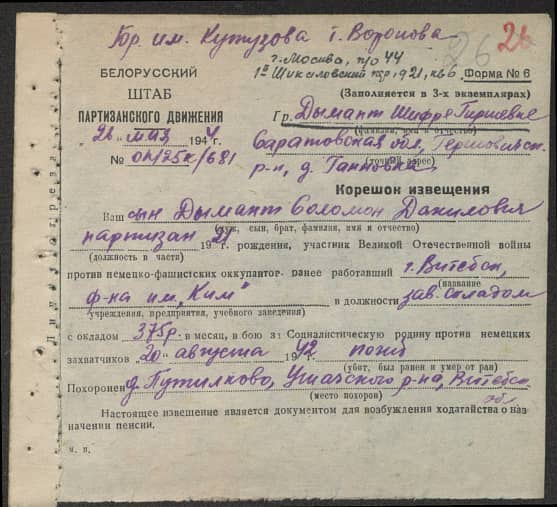 Бр. им. Кутузова г. Воронова
26
26
г. Москва, п/о 44
1й Щикаловский пр, 921, кв 6.
Форма № 6
БЕЛОРУССКИЙ
ШТАБ
ПАРТИЗАНСКОГО ДВИЖЕНИЯ
"26" мая 1944 г.
№ ОК/25к/681
(Заполняется в 3-х экземплярах)
Гр. Дымант Шифре Гиршевне
(фамилия, имя и отчество)
Саратовская обл,
р-н, д.
(точный адрес)
Корешок извещения
Ваш сын Дымант Соломон Данилович
(муж, сын, брат, фамилия, имя и отчество)
партизан 19 г. рождения, участник Великой Отечественной войны
(должность в части)
против немецко-фашистских оккупантов, ранее работавший г. Витебск,
(название
ф-ка им. "Ким" в должности зав. складом
учреждения, предприятия, учебного заведения)
с окладом 375р. в месяц, в бою за Социалистическую родину против немецких
захватчиков "20" августа 1942 погиб
(убит, был ранен и умер от ран)
Похоронен д. Путилково, Ушачского р-на, Витебск. обл
(место похорон)
Настоящее извещение является документом для возбуждения ходатайства о наз-
начении пенсии.
м. п.